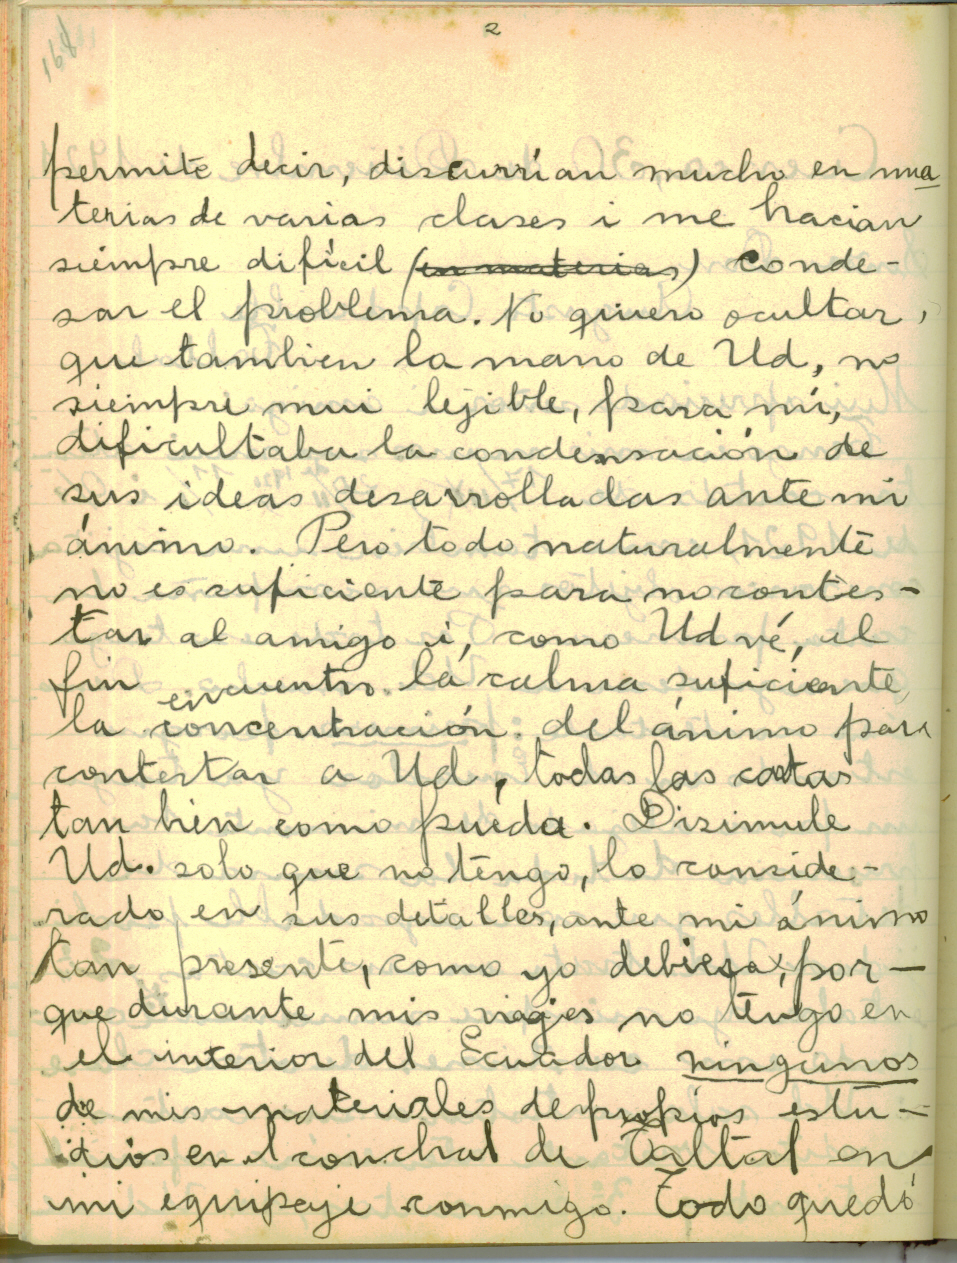 2
168
permite decir, discurrían mucho en ma
terias de varias clases i me hacian
siempre difícil (en materias) conde-
sar el problema. No quiero ocultar,
que tambien la mano de Ud, no
siempre mui lejible, para mí,
dificultaba la condensación de
sus ideas desarrolladas ante mi
ánimo. Pero todo naturalmente
no es suficiente para no contes-
tar al amigo i, como Ud vé, al
fin encuentro la calma suficiente,
la concentración del ánimo para
contestar a Ud, todas las cartas
tan bien como pueda. Disimule
Ud. solo que no tengo, lo conside-
rado en sus detalles, ante mi ánimo
tan presente, como yo debiera, por-
que durante mis viajes no tengo en
el interior del Ecuador ningunos
de mis materiales de propios estu-
dios en el conchal de Taltal en
mi equipaje conmigo. Todo quedó